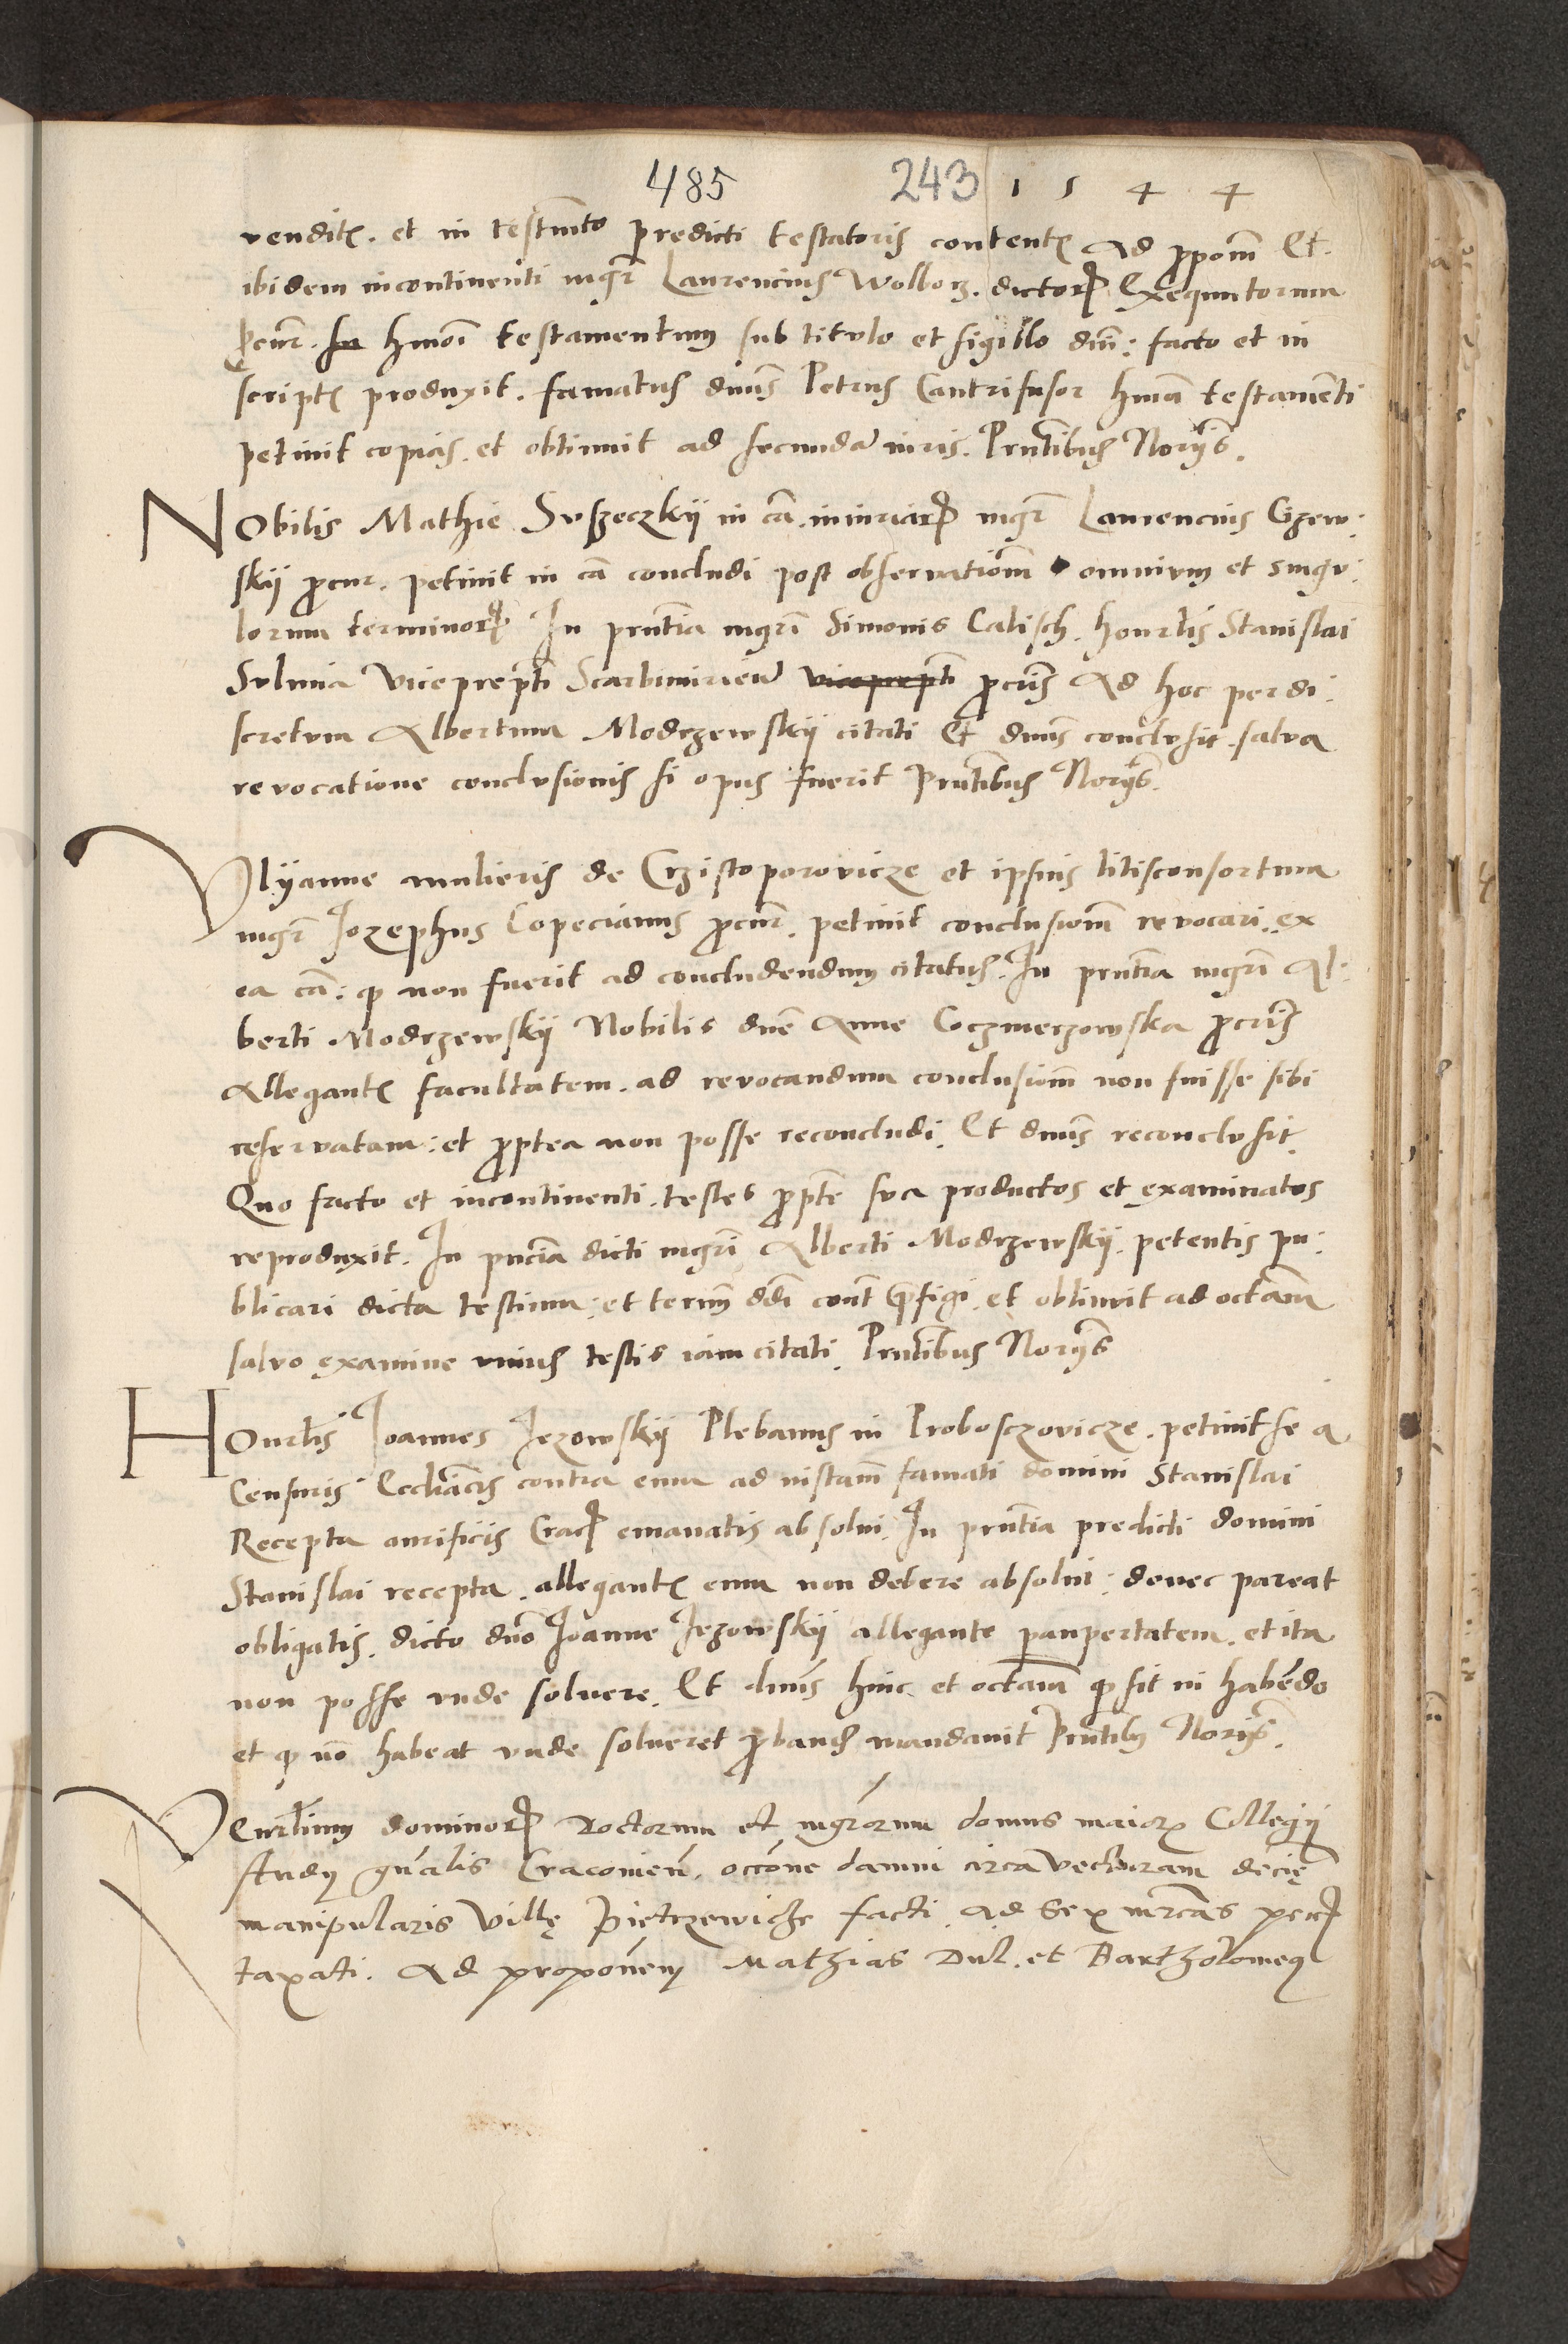 485 243 1 5 4 4
vendit. et in testmto predicti testatoris content Ad ppom Et.
ibidem incontinenti mgr Laurencius Wolborz. dictor Exequutorum
pcur. hmoi testamentum sub titulo et sigillo dni: facto et in
script produxit. famatus dnus Petrus Cantrifusor hmoi testamenti
petiuit copias. et obtinuit ad secunda iuris. Pntibus Norijs.
NObilis Mathie Suszeczkij in ca. iniuriar mgr Laurencius Gzew:
skij pcur. petiuit in ca concludi post obseruationm omnium et singu:
lorum terminor In pntia mgri Simonis Calisch. honrlis Stanislai
Sulima viceprepti Scarbimirien viceprepti pcuris Ad hoc per di:
scretum Albertum Modrzewskij citati Et dnus conclusit. salua
reuocatione conclusionis si opus fuerit Pntibus Norijs.
Vlyanne mulieris de Crzistoporovicze et ipsius litisconsortum
mgr Jozephus Copecianus pcur. petiuit conclusionm reuocari. ex
ea ca: q non fuerit ad concludendum citatus. In pntia mgri Al:
berti Modrzewskij Nobilis dne Anne Coczmerzowska pcuris
Allegant facultatem. ad reuocandum conclusionm non fuisse sibi
reseruatam: et pptea non posse reconcludi. Et dnus reconclusit.
Quo facto et incontinenti. testes p pte sua productos et examinatos
reproduxit. In pncia dicti mgri Alberti Modrzewskij. petentis pu:
blicari dicta testium: et termm ddi cont pfigi. et obtinuit ad octam
saluo examine vnius testis iam citati. Pntibus Norijs
HOnrlis Joannes Jezowskij Plebanus in Proboszovicze. petiuit se a
Censuris Eccliacis contra eum ad instam famati domini Stanislai
Recepta aurificis Crac emanatis absolui. In pntia predicti domini
Stanislai recepta. allegant eum non debere absolui: donec pareat
obligatis. dicto dno Joanne Jezowskij allegante paupertatem. et ita
non posse vnde soluere. Et dnus hinc et octam q sit in habendo
et q no habeat vnde solueret pband mandauit Pntibus Norijs.
Venrlium dominor Doctorum et mgrorum domus maior Collegij
studij gnalis Cracouien. occone damni circa vecturam decię
manipularis Villę Pietrzewicze facti. Ad sex mrcas pecu
taxati. Ad proponem Mathias Dul. et Bartholomeus